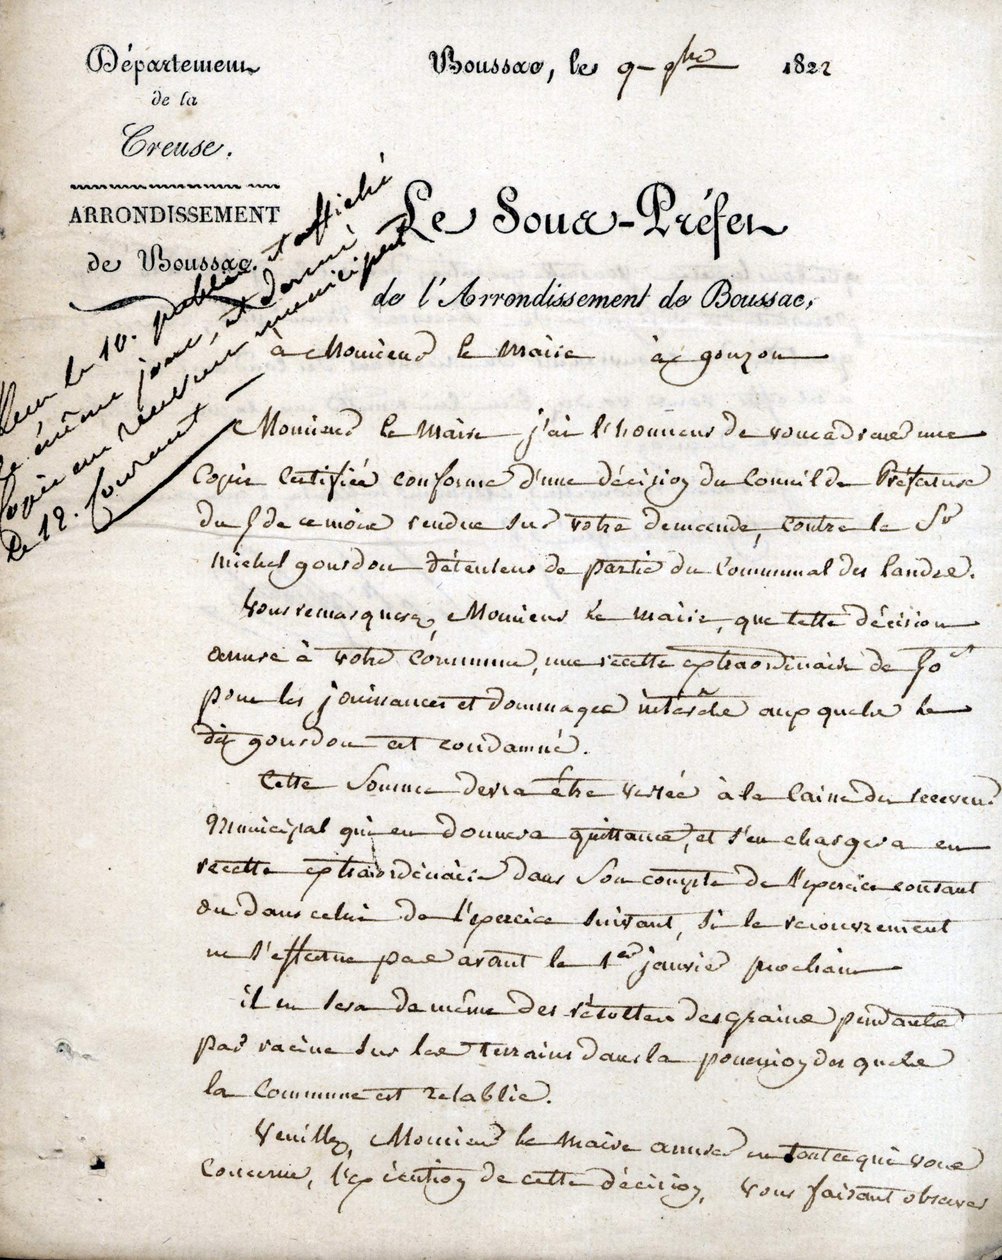 Département
de la
Creuse.
ARRONDISSEMENT
de Boussac.
Boussac, le 9 9bre 1822
Le Sous-Préfet
de l'Arrondissement de Boussac,
à Monsieur le Maire à Gouzon
Reçu le 10. publié et affiché
le même jour, et donné
copie au receveur municipal
le 12. Courant
Monsieur le Maire j'ai l'honneur de vous adresser une
Copie Certifiée conforme d'une décision du Conseil de Préfecture
du 5 de ce mois rendue sur votre demande, contre le Sr
Michel gourdon détenteur de partie du Communal des landes.
Vous remarquerez, Monsieur le Maire, que cette décision
assure à votre commune, une recette extraordinaire de
pour les jouissances et dommages intérêts auxquels le
dit gourdon est condamné.
Cette Somme devra être versée à la Caisse du receveur
Municipal qui en donnera quittance, et s'en chargera en
recette extraordinaire dans Son compte de l'exercice courant
ou dans celui de l'exercice suivant, si le recouvrement
ne s'effectue pas avant le 1er janvier prochain
il en sera de même des récoltes des grains pendantes
par racine sur les terrains dans la possession desquels
la Commune est rétablie.
Veuillez, Monsieur le Maire assurer en tout ce qui vous
Concerne, l'exécution de cette décision, vous faisant observer